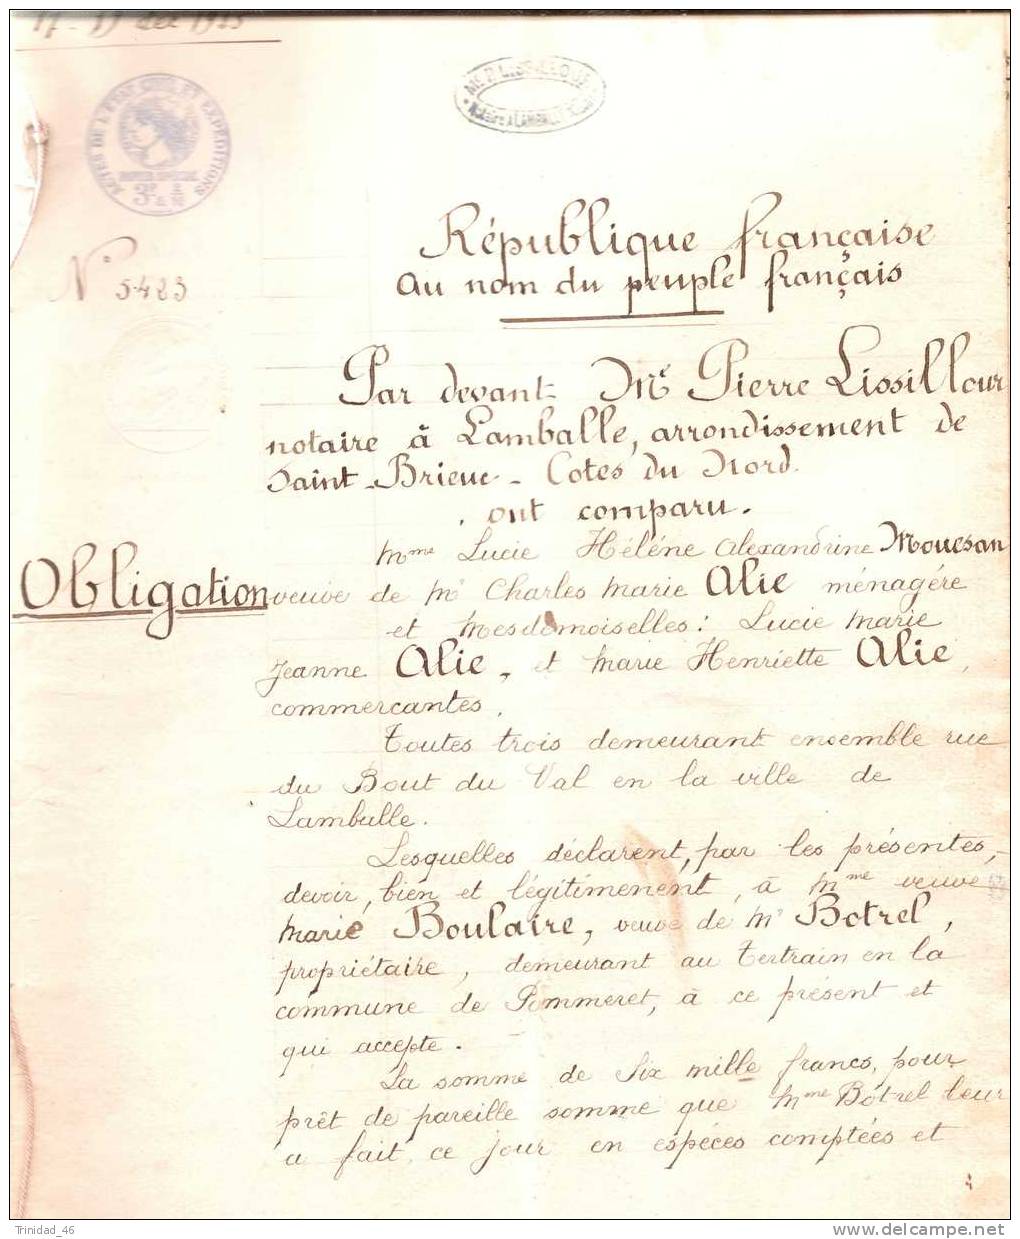 17 - 19 déc 1925
ACTES DE L'ETAT CIVIL ET EXPEDITIONS
Notaire A LAMBALLE
N° 5423
République française
Au nom du peuple français
Par devant Me Pierre Lissillour
notaire à Lamballe, arrondissement de
Saint-Brieuc - Cotes du Nord.
ont comparu.
Mme Lucie Héléne Alexandrine Mouesan
Obligation
veuve de Mr Charles Marie Alie ménagére
et Mesdemoiselles: Lucie Marie
Jeanne Alie, et Marie Henriette Alie,
commercantes.
Toutes trois demeurant ensemble rue
du Bout du Val en la ville de
Lamballe.
Lesquelles déclarent, par les présentes,
devoir, bien et légitimement, à Mme veuve
Marie Boulaire, veuve de Mr Botrel,
propriétaire, demeurant au Tertrain en la
commune de Pommeret, à ce présent et
qui accepte.
La somme de Six mille francs, pour
prêt de pareille somme que Mme Botrel leur
a fait, ce jour en espéces comptées et
Trinidad_46
www.delcampe.net